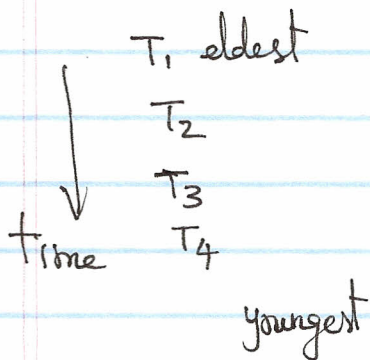 T₁ eldest
T₂
T₃
T₄
time
youngest